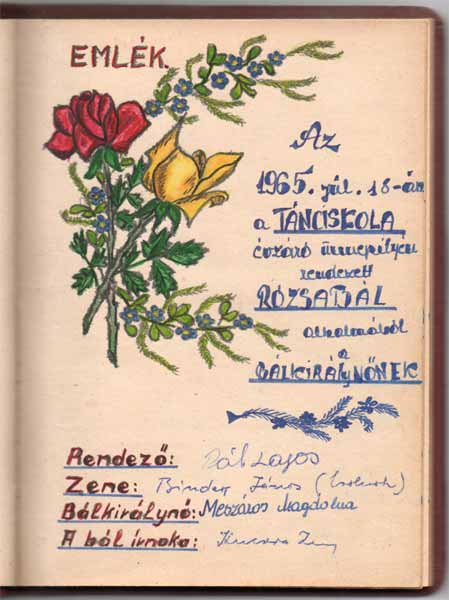 EMLÉK.
Az
1965. júl. 18-án
a TÁNCISKOLA
évzáró ünnepélyén
rendezett
RÓZSABÁL
alkalmából
a
BÁLKIRÁLYNŐNEK
Rendező: Lajos
Zene: Binder János
Bálkirálynő: Mészáros Magdolna
A bál írnoka: